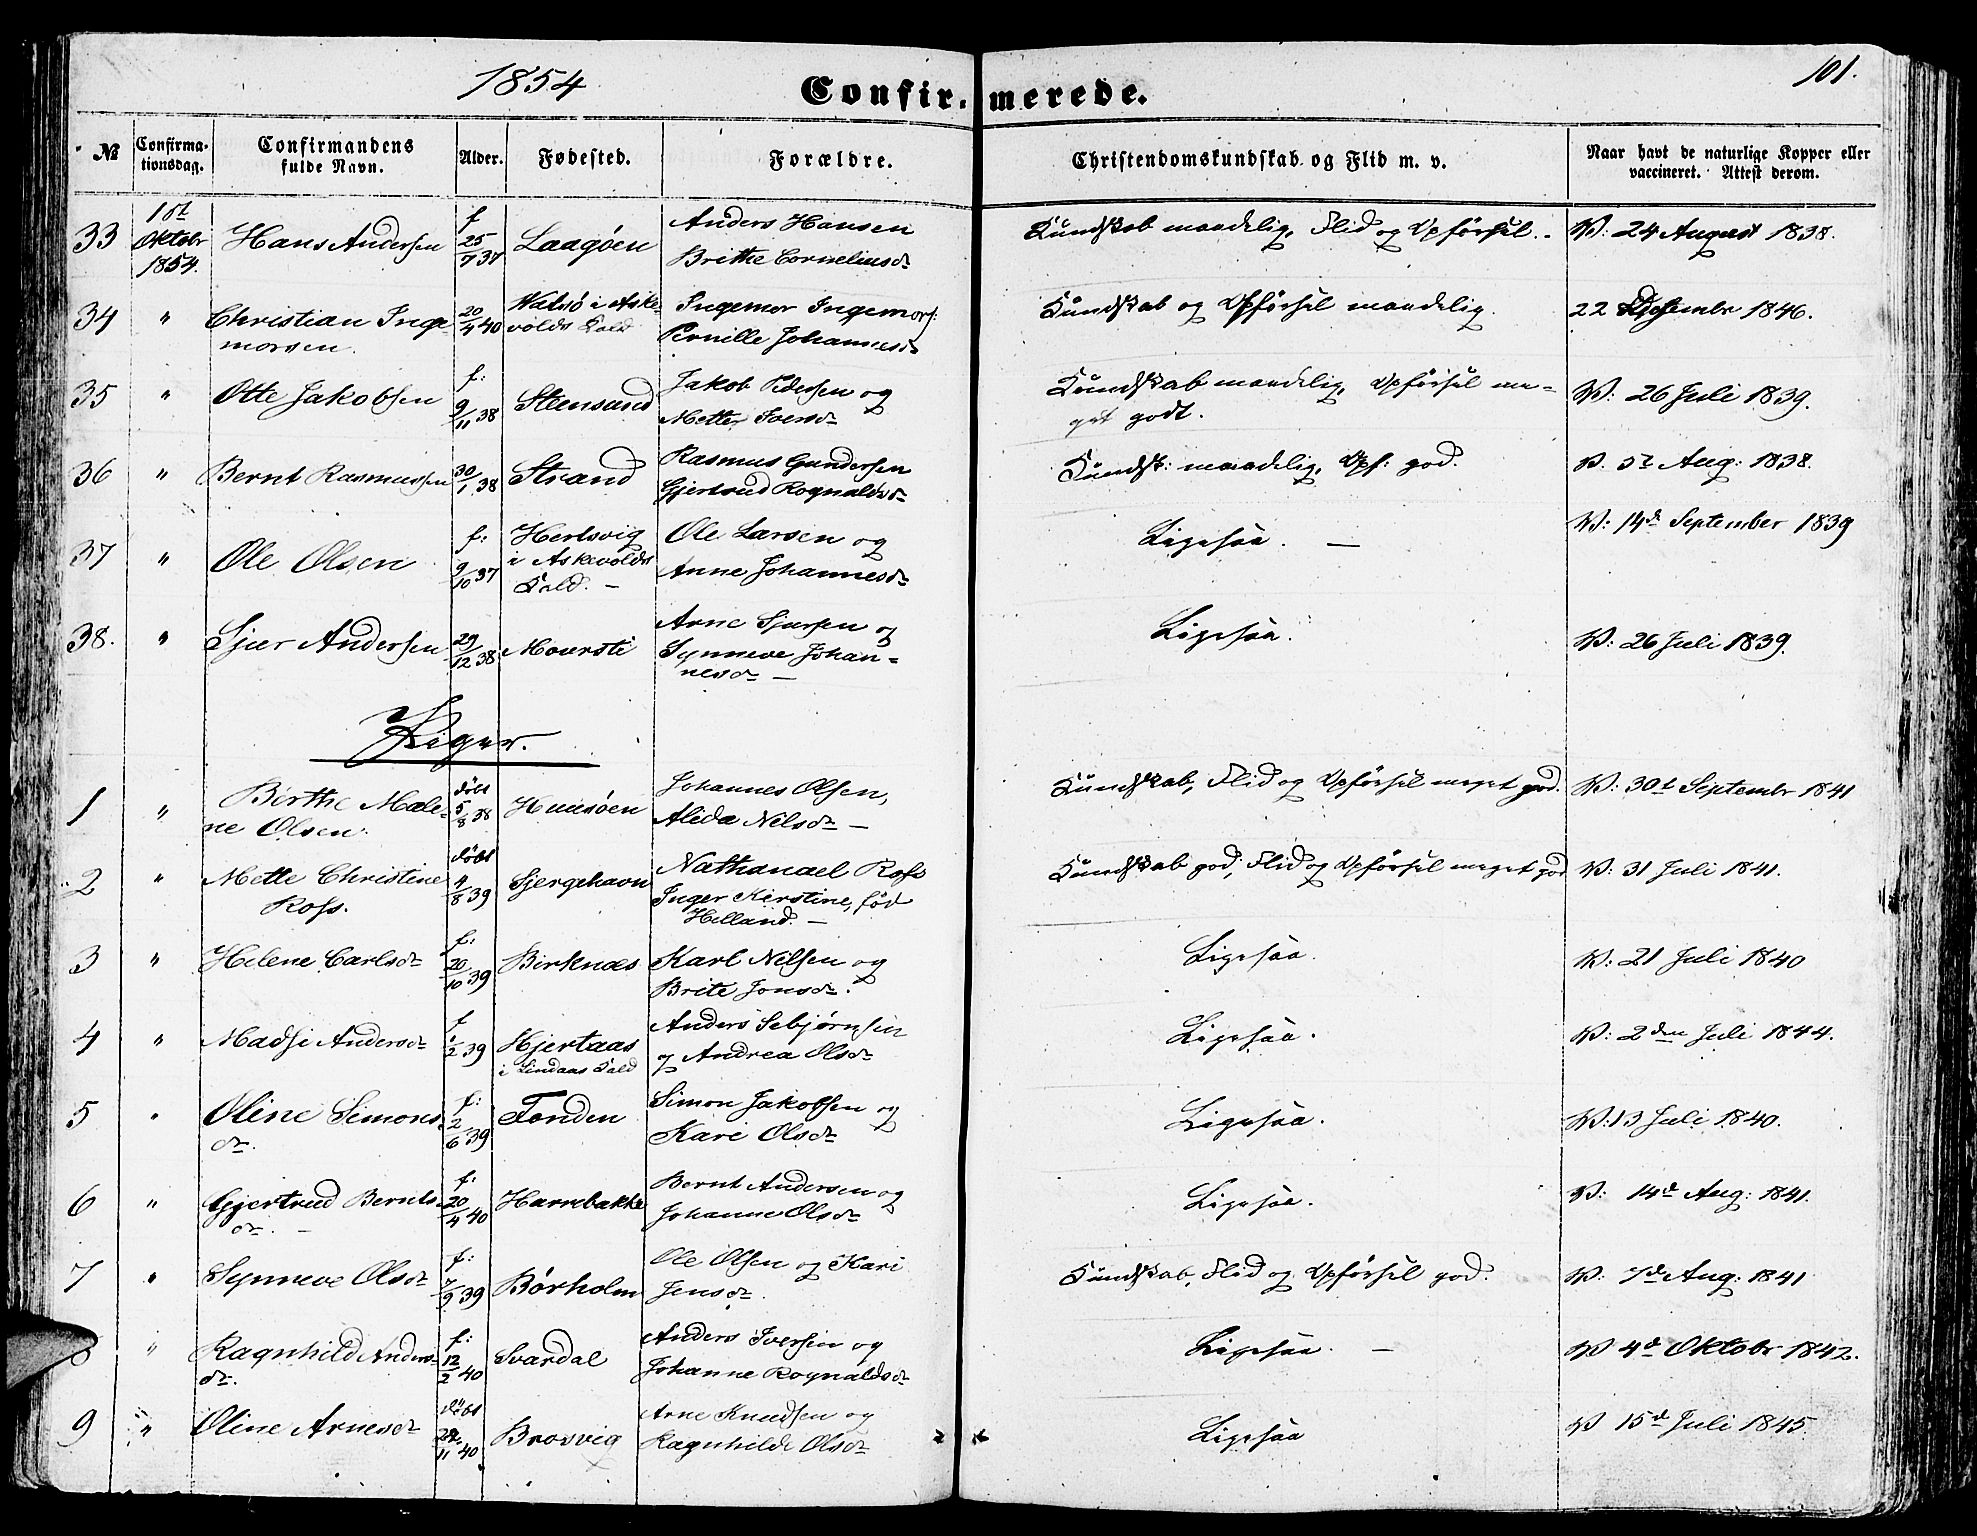 1854
Confirmerede.
101.
№ Confirmationsdag. Confirmandens fulde Navn. Alder. Fødested. Forældre. Christendomskundskab og Flid m. v. Naar havt de naturlige Kopper eller vaccineret. Attest derom.
33 1st Oktobr 1854. Hans Andersen f 25/7 37 Laagøen Anders Hansen Brithe Corneliusdr Kundskab maadelig, Flid og Opførsel. - V: 24 August 1838.
34 " Christian Ingemorsen. 20/4 40 i Askevolds Kald Ingemor Ingemors: Pernille Johannesdr Kundskab og Opførsel maadelig. 22 Desembr 1846.
35 " Otte Jakobsen f: 9/11 38 Steensund Jakob Pedersen og Mette Iversdr Kundskab maadelig, Opførsel meget godt. V: 26 Juli 1839.
36 " Bernt Rasmussen 30/1 38 Strand Rasmus Gundersen Gjertrud Rognaldsdr Kundsk: maadelig, Opf: god. V. 5t Aug: 1838.
37 " Ole Olsen f: 9/10 37 Hertsvig i Askevolds Kald. - Ole Larsen og Anne Johannesdr Ligesaa. — V: 14d September 1839
38. " Sjur Andersen 29/12 38 Moursti Arne Sjursen og Synneve Johannesdr — Ligesaa. V: 26 Juli 1839.
Piger.
1 " Birthe Malene Olsen. døbt 5/8 38 Huusøen Johannes Olsen, Alida Nelsdr — Kundskab, Flid og Opførsel meget god. V: 30t Septembr 1841
2 " Mette Christine Ross. døbt 4/8 39 Gjergehavn Nathanael Ross Inger Kirstine, fød Helland. — Kundskab god, Flid og Opførsel meget god V: 31 Juli 1841.
3 " Helene Carlsdr f: 20/10 39 Birknæs Karl Nelsen og Brite Jonsdr. Ligesaa. V: 21 Juli 1840
4 " Madsi Andersdr f 1/2 39 Hjertaas i Lindaas Kald Anders Sebjørnsen og Andrea Olsdr Ligesaa. V: 2den Juli 1844.
5 " Oline Simonsdr. f: 2/6 39 Tonden Simon Jakobsen og Kari Olsdr Ligesaa. V: 13 Juli 1840.
6 " Gjertrud Berntsdr. — f: 20/4 40 Harrebakke Bernt Andersen og Johanne Olsdr Ligesaa. V: 14d Aug: 1841.
7 " Synneve Olsdr f: 7/9 39 Børholm Ole Olsen og Kari Jensdr. Kundskab, Flid og Opførsel god. V: 7d Aug: 1841
8 " Ragnhild Andersdr. f: 12/2 40 Svardal Anders Iversen og Johanne Rognaldsdr Ligesaa. — V 4d Oktobr 1842.
9 " Oline Arnesdr døbt /11 40 Brosvig Arne Knudsen og Ragnhilde Olsdr Ligesaa V 15d Juli 1845.